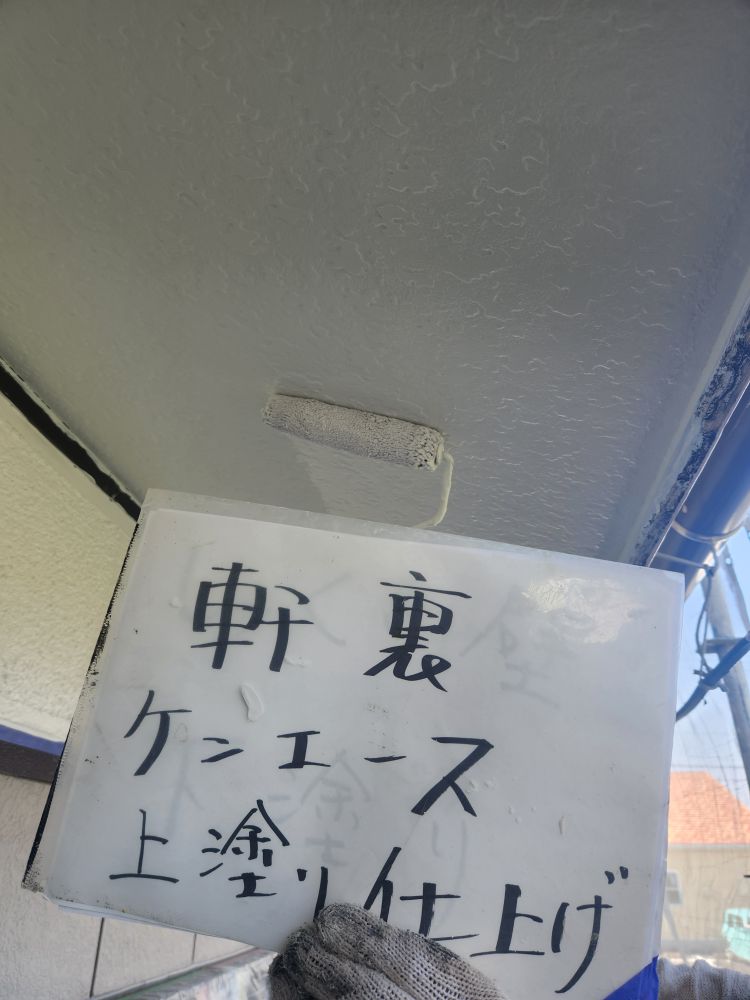 軒裏
ケンエース
上塗り仕上げ